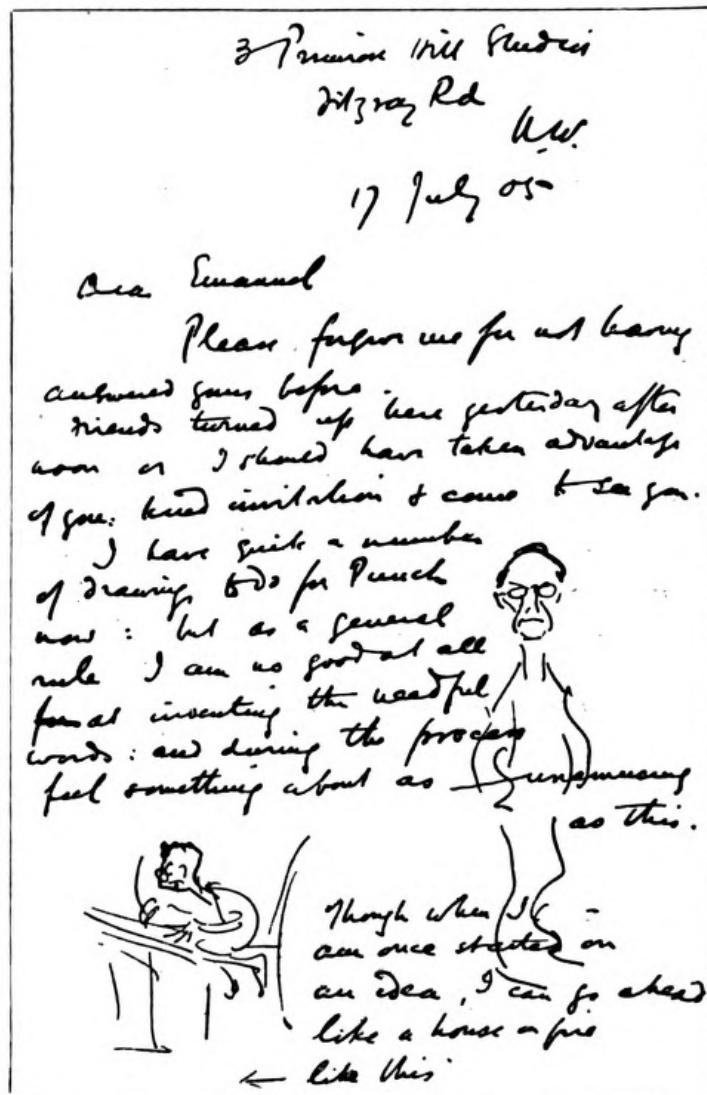 3 Primrose Hill Studios
Fitzroy Rd
N.W.
17 July 05
Dear Emanuel
Please forgive me for not having
answered yours before.
Friends turned up here yesterday after
noon or I should have taken advantage
of your kind invitation & come to see you.
I have quite a number
of drawings to do for Punch
now: but as a general
rule I am no good at all
at inventing the needful
words: and during the process
feel something about as unamusing
as this.
Though when I
am once started on
an idea, I can go ahead
like a house on fire
← like this